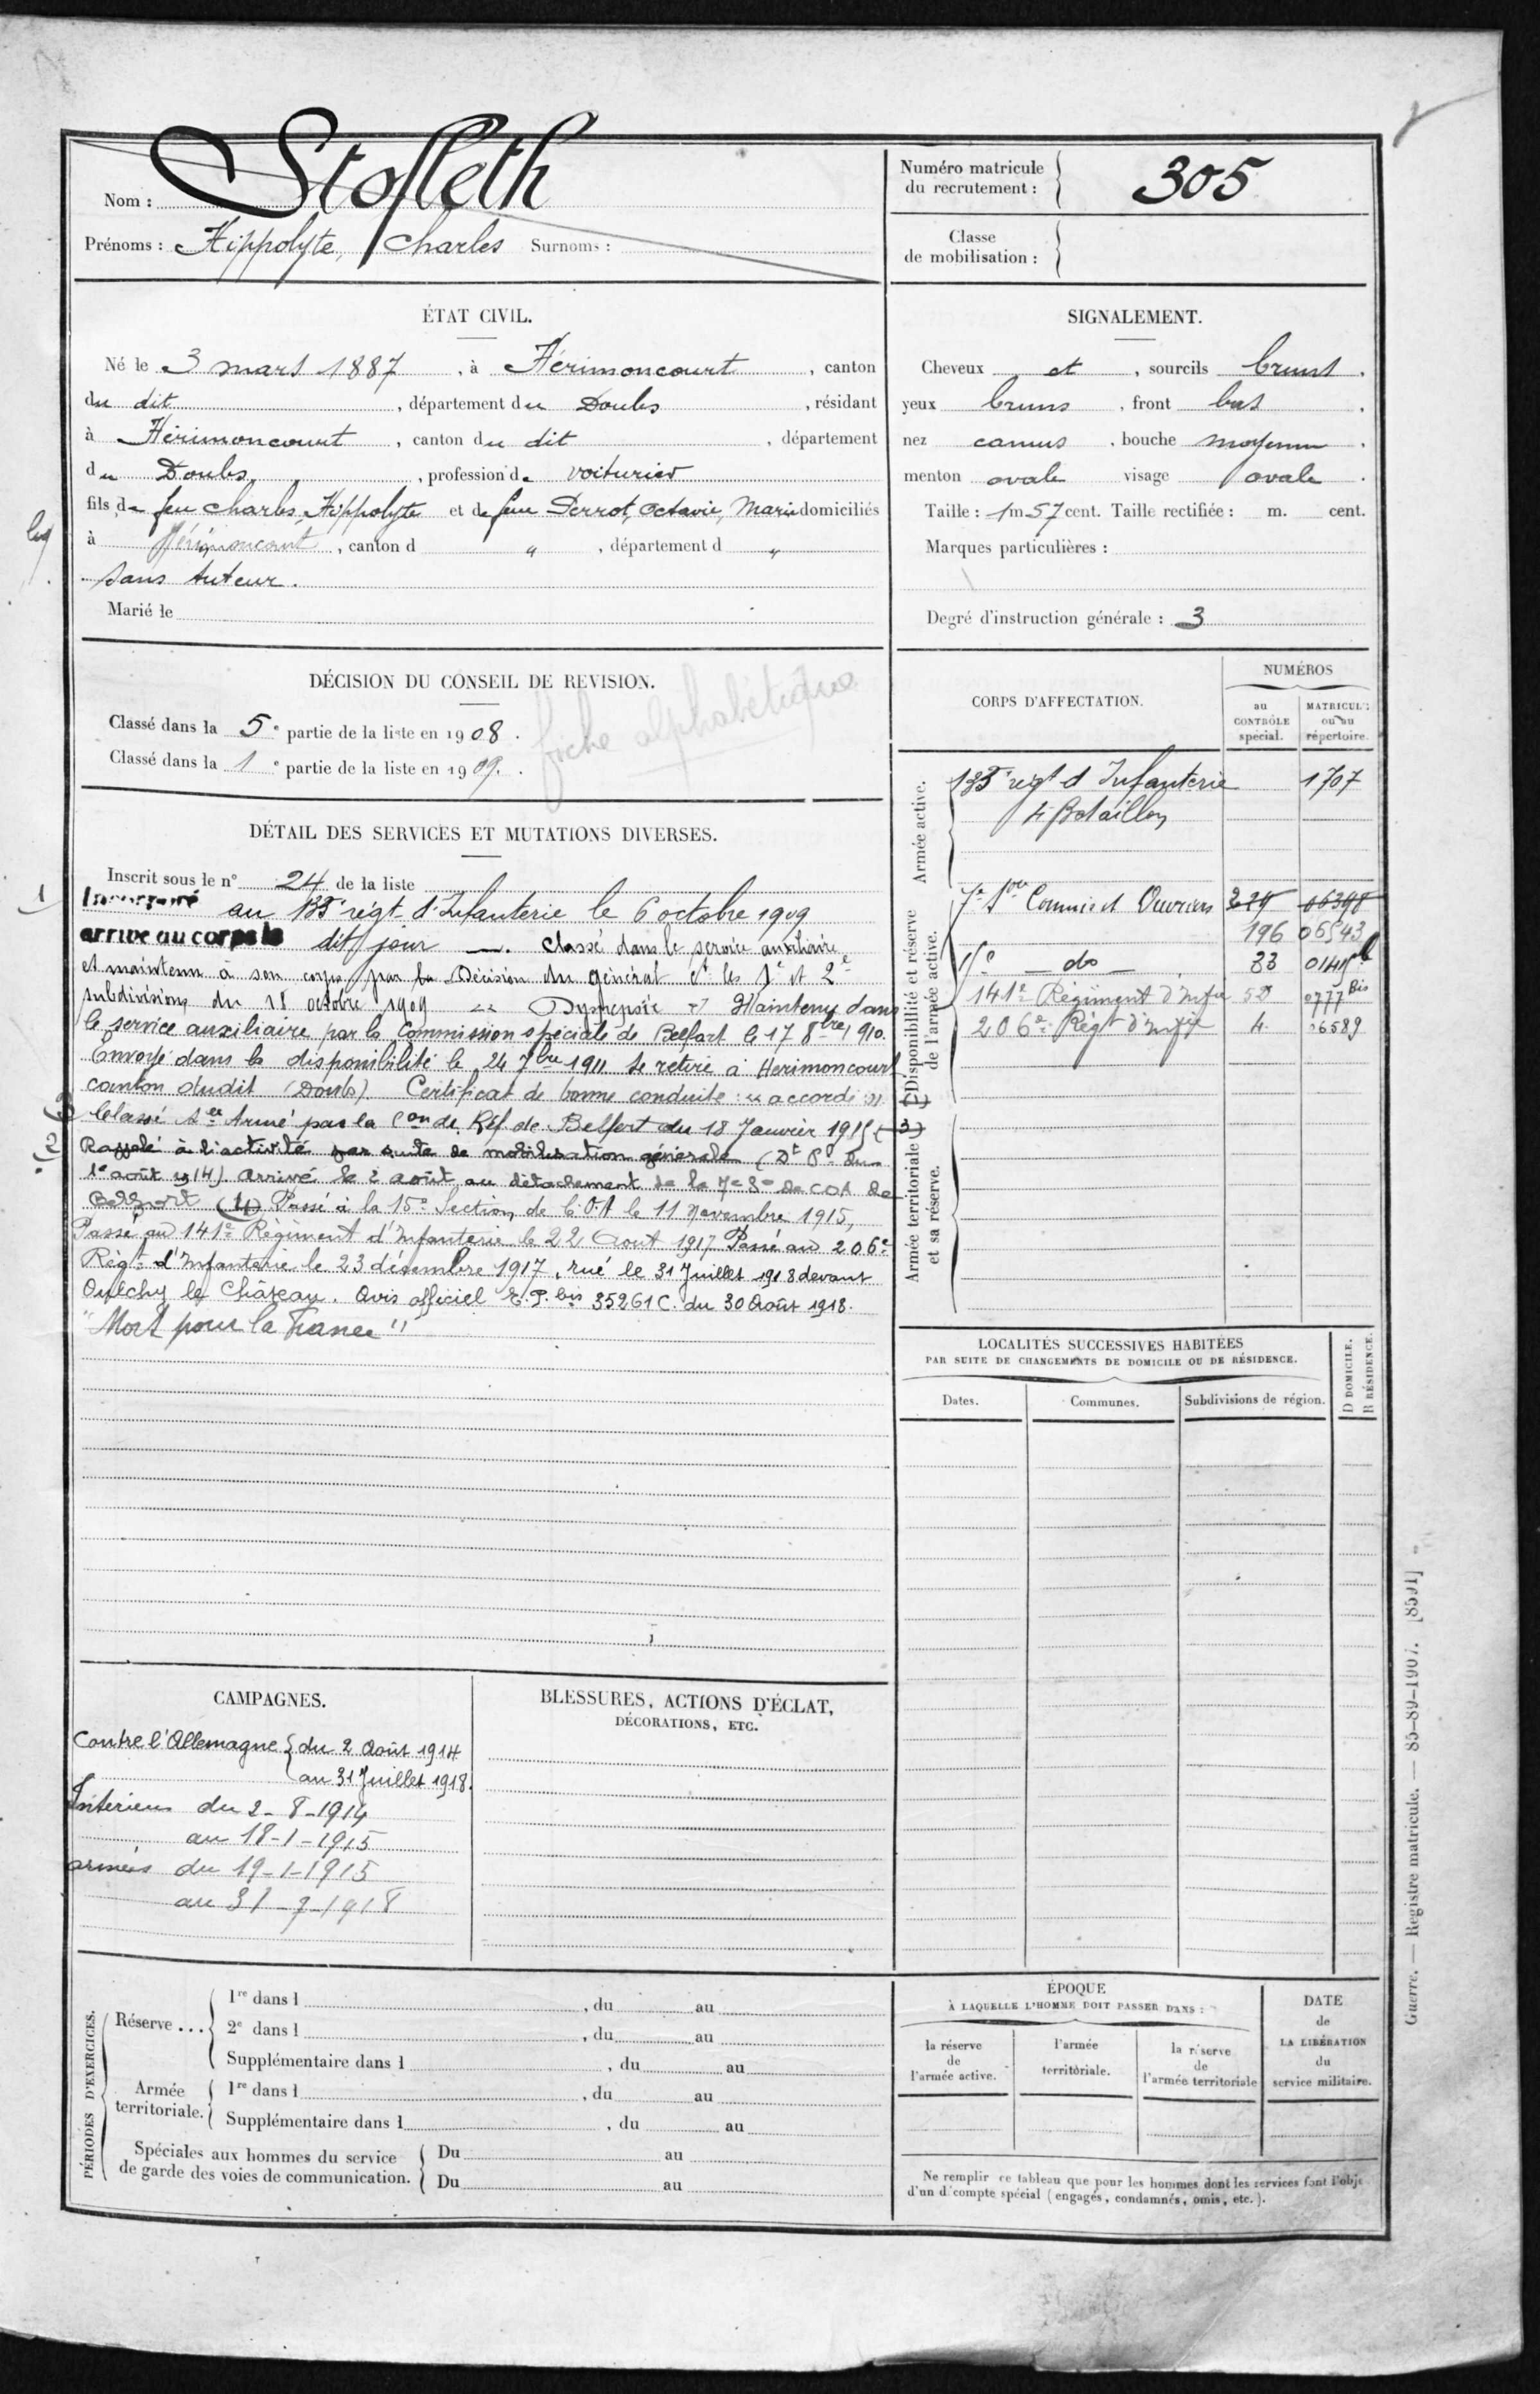 Nom : Stofleth
Prénoms : Hippolyte, Charles Surnoms :
Numéro matricule
du recrutement : 305
Classe
de mobilisation :
ÉTAT CIVIL.
Né le 3 mars 1887, à Hérimoncourt, canton
du dit, département du Doubs, résidant
à Hérimoncourt, canton du dit, département
du Doubs, profession de voiturier
fils de feu Charles, Hippolyte et de feue Perrot, Octavie, Marie domiciliés
à Hérimoncourt, canton d ", département d "
sans tuteur.
Marié le
SIGNALEMENT.
Cheveux et, sourcils bruns.
yeux bruns, front bas.
nez camus, bouche moyenne.
menton ovale visage ovale.
Taille : 1 m 57 cent. Taille rectifiée : m. cent.
Marques particulières :
Degré d'instruction générale : 3
DÉCISION DU CONSEIL DE REVISION.
Classé dans la 5e partie de la liste en 1908.
Classé dans la 1e partie de la liste en 1909.
fiche alphabétique
DÉTAIL DES SERVICES ET MUTATIONS DIVERSES.
Inscrit sous le n° 24 de la liste
Incorporé au régt d'Infanterie le 6 octobre 1909
arrivé au corps le dit jour —. Classé dans le service auxiliaire
et maintenu à son corps par la Décision du général Ct les 1e et 2e
subdivisions du 18 octobre 1909 "Dyspepsie" Maintenu dans
le service auxiliaire par la Commission spéciale de Belfort le 17 8bre 1910.
Envoyé dans la disponibilité le 24 7bre 1911 se retire à Herimoncourt
canton dudit (Doubs). Certificat de bonne conduite : "accordé".
Classé Sce Armé par la Con de Réf. de Belfort du 18 Janvier 1915 (3)
Rappelé à l'activité par suite de mobilisation générale (Dt Pl du
1e août 1914) Arrivé le 2 août au détachement de la 7e Son de COA de
Belfort (4) Passé à la 15e Section de C.O.A le 11 Novembre 1915,
Passé au 141e Régiment d'Infanterie le 22 Aout 1917 Passé au 206e
Régt d'Infanterie le 23 décembre 1917, tué le 31 Juillet 1918 devant
Oulchy le Château. Avis officiel E.P. bis 35261 C. du 30 Août 1918.
"Mort pour la France"
CORPS D'AFFECTATION.
NUMÉROS
au
CONTRÔLE
spécial.
MATRICULE
ou au
répertoire.
Armée active.
régt d'Infanterie 1707
4 Bataillon
Disponibilité et réserve
de l'armée active.
7e Son Commis et Ouvriers 06398
196 06543
15e — do — 33
141e Régiment d'Infie 52 0777 Bis
206e Régt d'Infie 4. 16589
Armée territoriale
et sa réserve.
LOCALITÉS SUCCESSIVES HABITÉES
PAR SUITE DE CHANGEMENTS DE DOMICILE OU DE RÉSIDENCE.
D DOMICILE.
R RÉSIDENCE.
Dates.
Communes.
Subdivisions de région.
CAMPAGNES.
Contre l'Allemagne { du 2 Août 1914
au 31 Juillet 1918.
Intérieur du 2-8-1914
au 18-1-1915
armées du 19-1-1915
au 31-7-1918
BLESSURES, ACTIONS D'ÉCLAT,
DÉCORATIONS, ETC.
PÉRIODES D'EXERCICES.
Réserve ...
1re dans l , du au
2e dans l , du au
Supplémentaire dans l , du au
Armée
territoriale.
1re dans l , du au
Supplémentaire dans l , du au
Spéciales aux hommes du service
de garde des voies de communication.
Du au
Du au
ÉPOQUE
À LAQUELLE L'HOMME DOIT PASSER DANS :
la réserve
de
l'armée active.
l'armée
territoriale.
la réserve
de
l'armée territoriale
DATE
de
LA LIBÉRATION
du
service militaire.
Ne remplir ce tableau que pour les hommes dont les services font l'obje
d'un décompte spécial (engagés, condamnés, omis, etc.).
Guerre. — Registre matricule. — 85-89-1907. [8591]